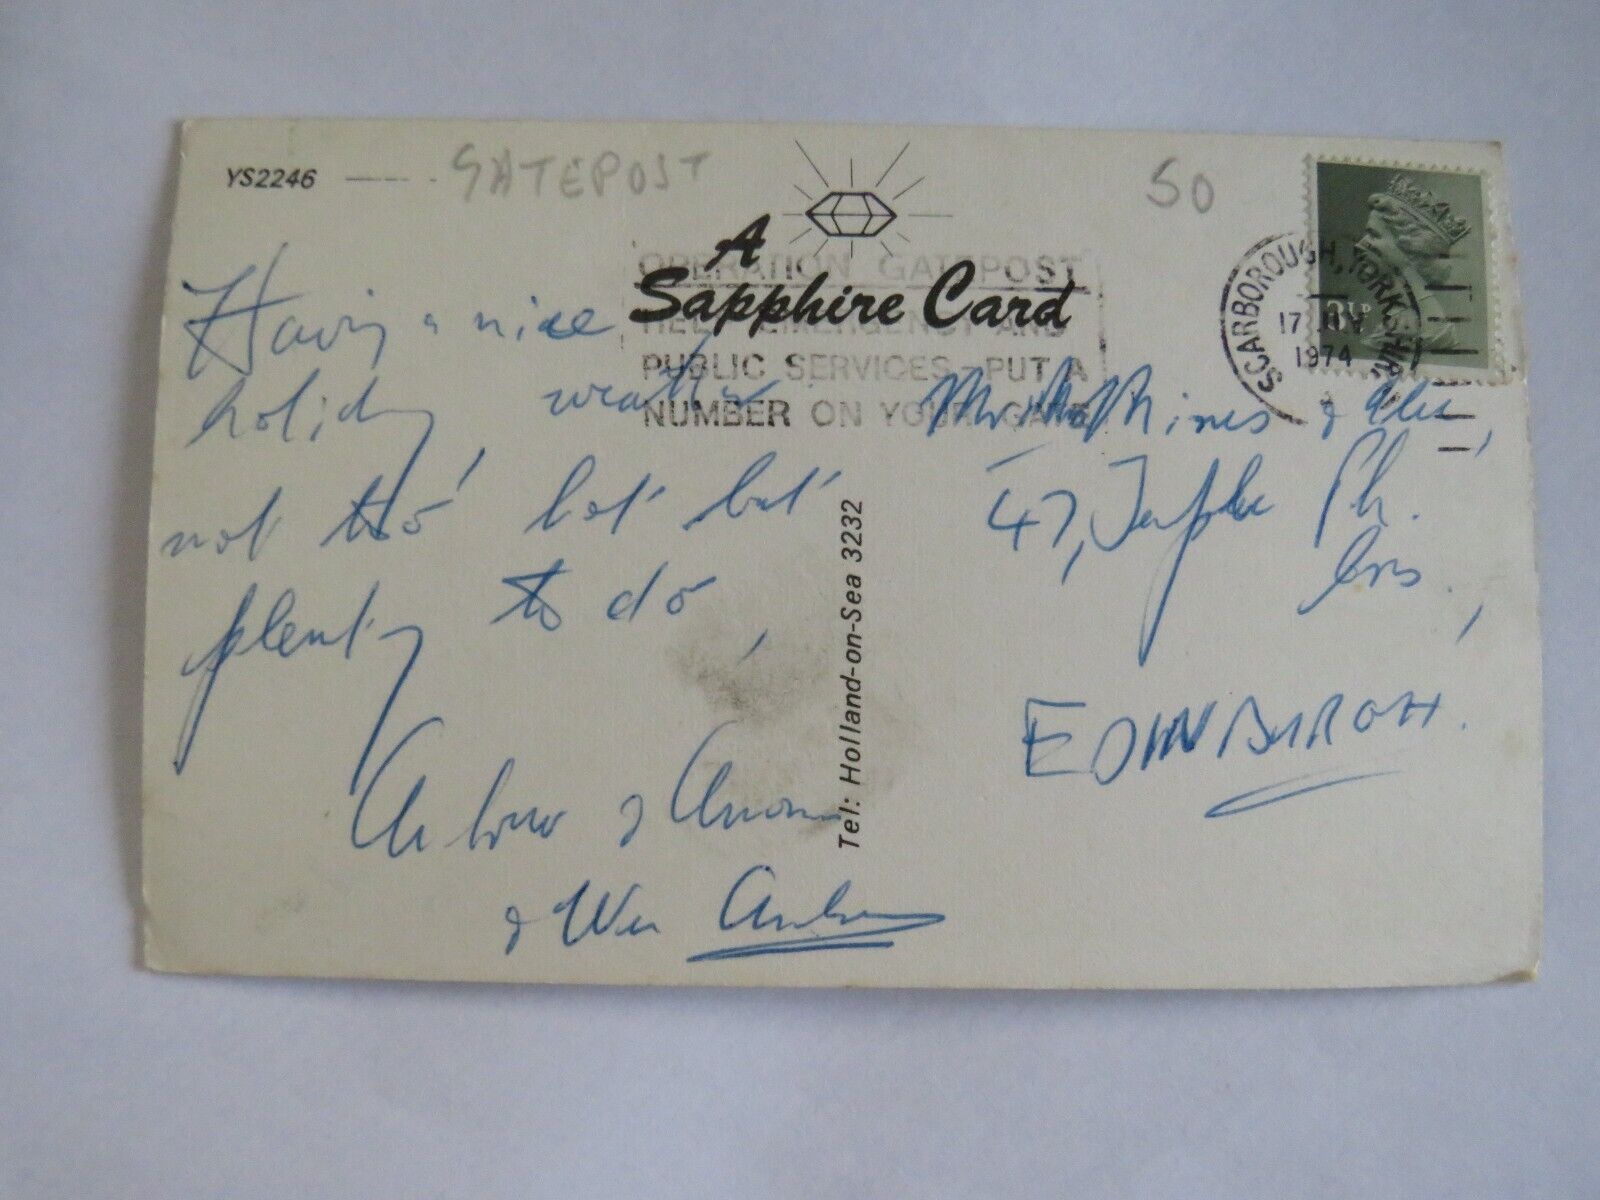 YS2246
GATEPOST
50
A
Sapphire Card
OPERATION GATEPOST
HELP EMERGENCY AND
PUBLIC SERVICES - PUT A
NUMBER ON YOUR GATE
SCARBOROUGH, YORKSHIRE
17 JLY
1974
Having a nice
holiday, weather
not too hot but
plenty to do,
&
& Wee
Tel: Holland-on-Sea 3232
Mr &
47, Pk.
EDINBURGH.